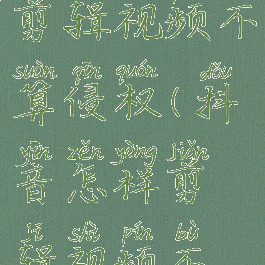 剪辑视频不
suàn qīn quán dǒu
算侵权(抖
yīn zěn yàng jiǎn
音怎样剪
jí shì pín bù
辑视频不